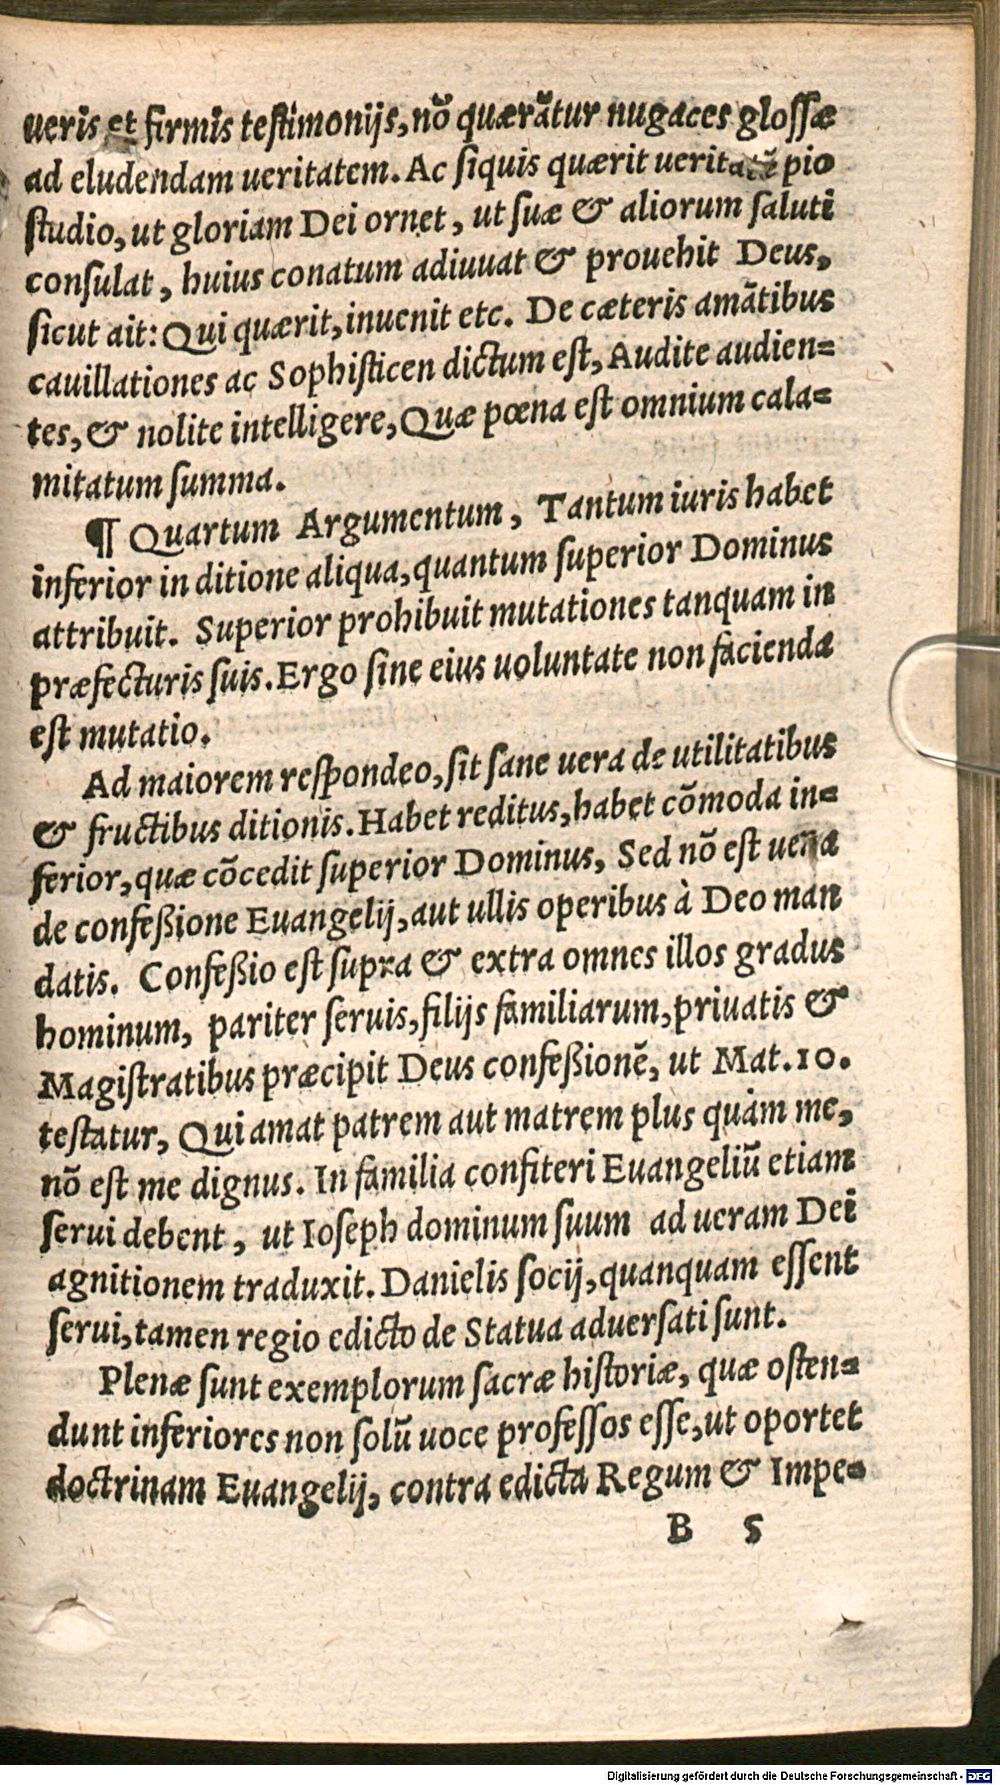 ueris et firmis testimonijs, nõ quærãtur nugaces glossæ
ad eludendam ueritatem. Ac siquis quærit ueritatẽ pio
studio, ut gloriam Dei ornet, ut suæ & aliorum saluti
consulat, huius conatum adiuuat & prouehit Deus,
sicut ait: Qui quærit, inuenit etc. De cæteris amãtibus
cauillationes ac Sophisticen dictum est, Audite audien=
tes, & nolite intelligere, Quæ pœna est omnium cala=
mitatum summa.
¶ Quartum Argumentum, Tantum iuris habet
inferior in ditione aliqua, quantum superior Dominus
attribuit. Superior prohibuit mutationes tanquam in
præfecturis suis. Ergo sine eius uoluntate non facienda
est mutatio.
Ad maiorem respondeo, sit sane uera de utilitatibus
& fructibus ditionis. Habet reditus, habet cõmoda in=
ferior, quæ cõcedit superior Dominus, Sed nõ est uera
de confeßione Euangelij, aut ullis operibus à Deo man
datis. Confeßio est supra & extra omnes illos gradus
hominum, pariter seruis, filijs familiarum, priuatis &
Magistratibus præcipit Deus confeßionẽ, ut Mat. 10.
testatur, Qui amat patrem aut matrem plus quàm me,
nõ est me dignus. In familia confiteri Euangeliũ etiam
serui debent, ut Ioseph dominum suum ad ueram Dei
agnitionem traduxit. Danielis socij, quanquam essent
serui, tamen regio edicto de Statua aduersati sunt.
Plenæ sunt exemplorum sacræ historiæ, quæ osten=
dunt inferiores non solũ uoce professos esse, ut oportet
doctrinam Euangelij, contra edicta Regum & Impe=
B 5
Digitalisierung gefördert durch die Deutsche Forschungsgemeinschaft - DFG